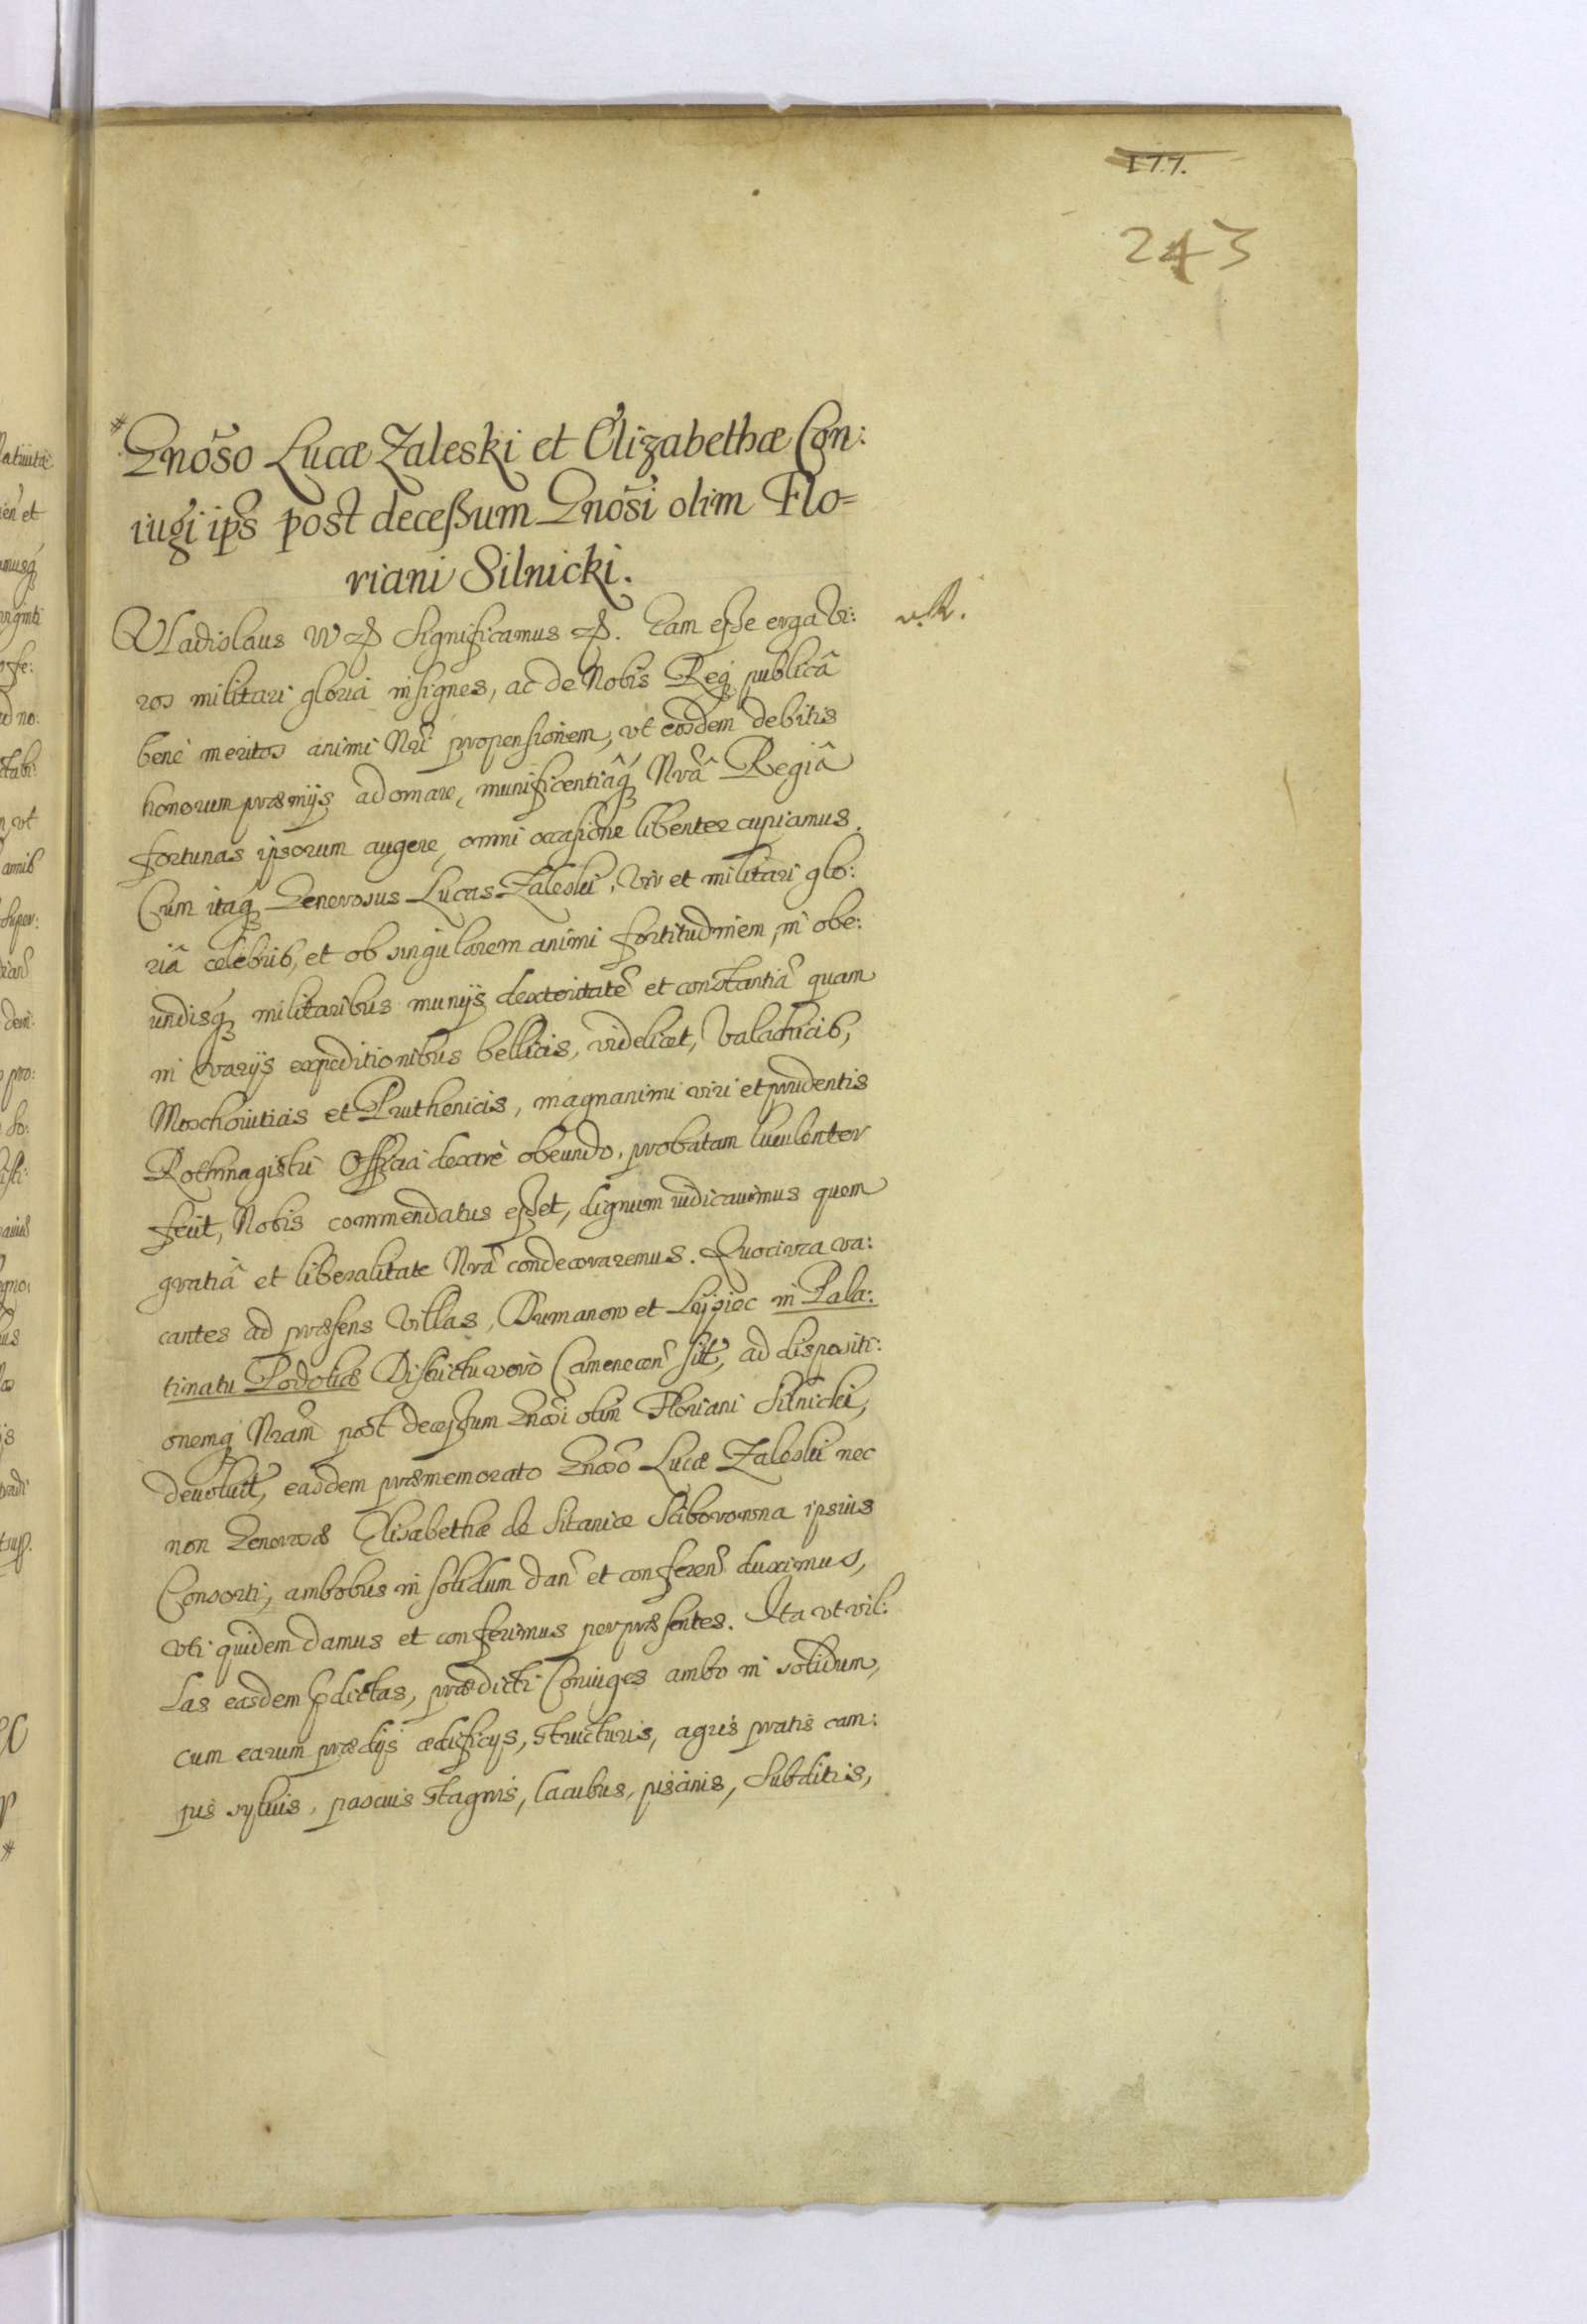 177.
243
* Gnoso Lucæ Zaleski et Elizabethæ Con:
iugi ips post deceßum Gnosi olim Flo=
riani Silnicki.
Vladislaus IV Significamus. Eam eße erga Vi: v. R.
ros militari gloriâ insignes, ac de Nobis Reqꝫ publicâ
bene meritos animi Nri propensionem, vt eosdem debitis
honorum præmijs adornare, munificentiâqꝫ Nrâ Regiâ
fortunas ipsorum augere, omni occasione libenter cupiamus.
Cum itaqꝫ Generosus Lucas Zaleski, Vir et militari glo:
riâ celebris, et ob singularem animi fortitudinem, in obe:
undisqꝫ militaribus munijs dexteritatē et constantiā quam
in varijs expeditionibus bellicis, videlicet, Valachicis,
Moschouiticis et Pruthenicis, magnanimi viri et prudentis
Rothmagistri Officia dextrè obeundo, probatam luculenter
fecit, Nobis commendatus eßet, dignum iudicauimus quem
gratiâ et liberalitate Nrâ condecoraremus. Quocirca va:
cantes ad præsens Villas, Dumanow et Lijpiec in Pala:
tinatu Podoliæ Districtu verò Camenecen sit, ad dispositi:
onemqꝫ Nram post deceßum Gnosi olim Floriani Silnicki,
deuolut, easdem præmemorato Gnoso Lucæ Zaleski nec
non Generosæ Elisabethæ de Sitanice Sciborowna ipsius
Consorti, ambobus in solidum dan et conferen duximus,
vti quidem damus et conferimus per præsentes. Ita vt vil:
las easdem pdictas, prædicti Coniuges ambo in solidum,
cum earum prædijs ædificijs, structuris, agris pratis cam:
pis syluis, pascuis stagnis, lacubus, piscinis, subditis,